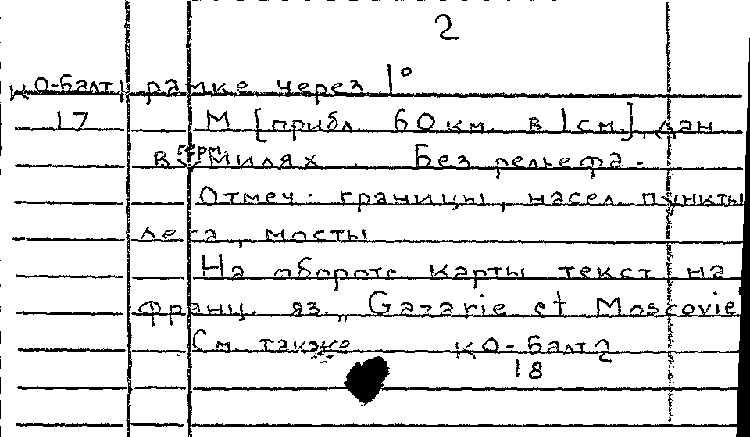 2
КО-балт рамке через 1°
17 М [прибл 60 км. в 1 см.], дан
в герм милях. Без рельефа.
Отмеч: границы, насел. пункты
леса, мосты
На обороте карты текст на
франц. яз. „Gazarie et Moscovie
См. также КО-балт 2
18